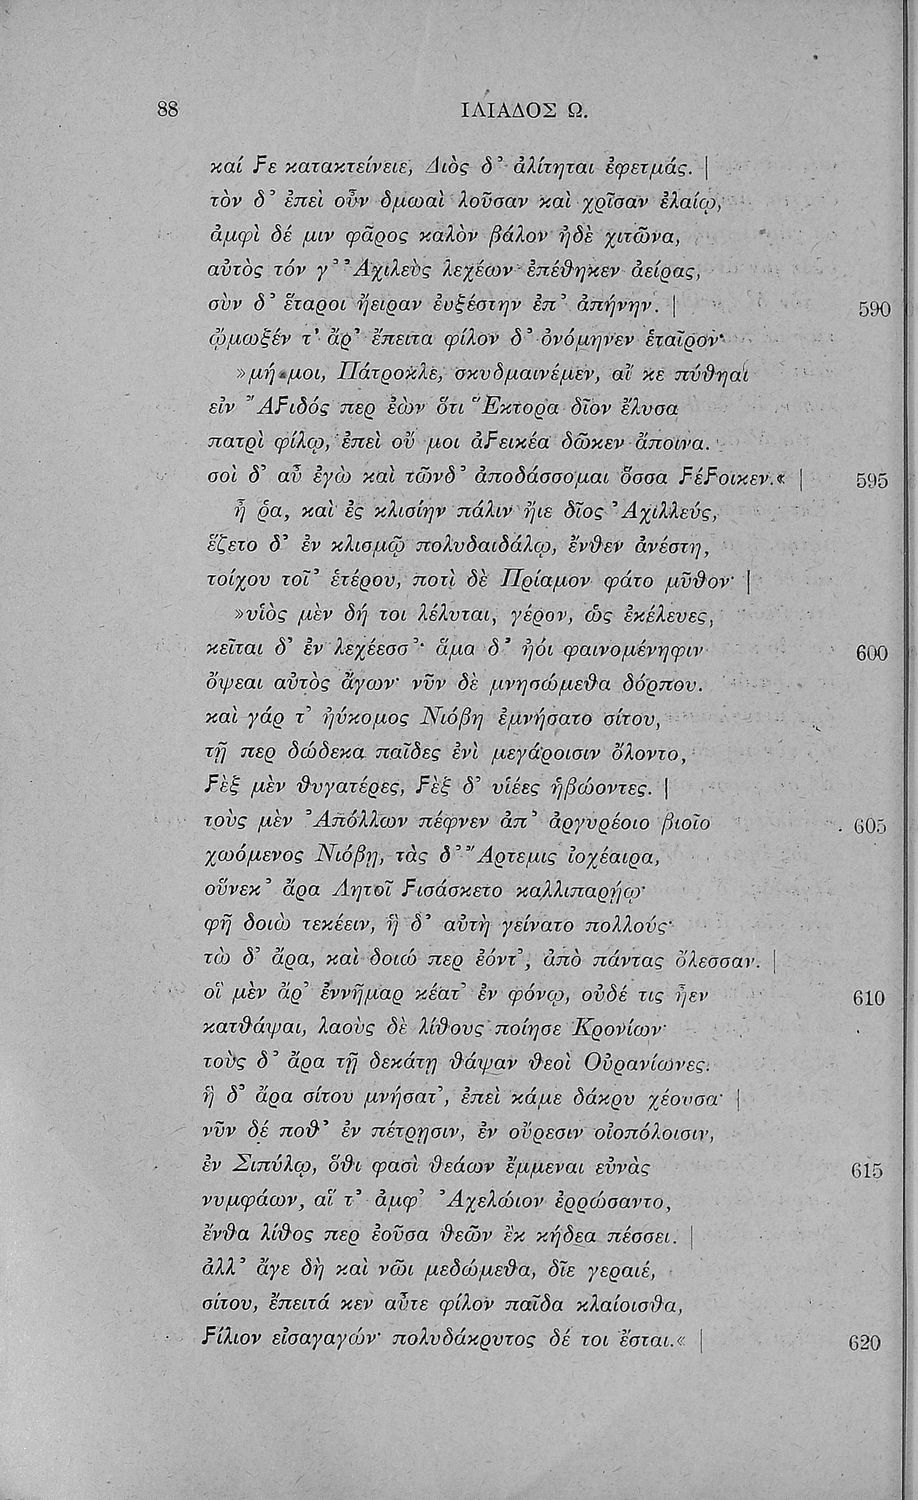 88 ΙΛΙΑΔΟΣ Ω.
καί ϝε κατακτείνειε, Διὸς δ᾽ ἀλίτηται ἐφετμάς. |
τὸν δ᾽ ἐπεὶ οὖν δμωαὶ λοῦσαν καὶ χρῖσαν ἐλαίῳ,
ἀμφὶ δέ μιν φᾶρος καλὸν βάλον ἠδὲ χιτῶνα,
αὐτὸς τόν γ᾽ Ἀχιλεὺς λεχέων ἐπέθηκεν ἀείρας,
σὺν δ᾽ ἕταροι ἤειραν ἐυξέστην ἐπ᾽ ἀπήνην. | 590
ᾤμωξέν τ᾽ ἄρ᾽ ἔπειτα φίλον δ᾽ ὀνόμηνεν ἑταῖρον·
»μή μοι, Πάτροκλε, σκυδμαινέμεν, αἴ κε πύθηαι
εἰν Ἄϝιδός περ ἐὼν ὅτι Ἕκτορα δῖον ἔλυσα
πατρὶ φίλῳ, ἐπεὶ οὔ μοι ἀϝεικέα δῶκεν ἄποινα.
σοὶ δ᾽ αὖ ἐγὼ καὶ τῶνδ᾽ ἀποδάσσομαι ὅσσα ϝέϝοικεν.« | 595
ἦ ῥα, καὶ ἐς κλισίην πάλιν ἤιε δῖος Ἀχιλλεύς,
ἕζετο δ᾽ ἐν κλισμῷ πολυδαιδάλῳ, ἔνθεν ἀνέστη,
τοίχου τοῖ᾽ ἑτέρου, ποτὶ δὲ Πρίαμον φάτο μῦθον· |
»υἱὸς μὲν δή τοι λέλυται, γέρον, ὡς ἐκέλευες,
κεῖται δ᾽ ἐν λεχέεσσ᾽· ἅμα δ᾽ ἠόι φαινομένηφιν 600
ὄψεαι αὐτὸς ἄγων· νῦν δὲ μνησώμεθα δόρπου.
καὶ γάρ τ᾽ ἠύκομος Νιόβη ἐμνήσατο σίτου,
τῇ περ δώδεκα παῖδες ἐνὶ μεγάροισιν ὄλοντο,
ϝὲξ μὲν θυγατέρες, ϝὲξ δ᾽ υἱέες ἡβώοντες. |
τοὺς μὲν Ἀπόλλων πέφνεν ἀπ᾽ ἀργυρέοιο βιοῖο 605
χωόμενος Νιόβῃ, τὰς δ᾽ Ἄρτεμις ἰοχέαιρα,
οὕνεκ᾽ ἄρα Λητοῖ ϝισάσκετο καλλιπαρῄῳ·
φῆ δοιὼ τεκέειν, ἣ δ᾽ αὐτὴ γείνατο πολλούς·
τὼ δ᾽ ἄρα, καὶ δοιώ περ ἐόντ᾽, ἀπὸ πάντας ὄλεσσαν. |
οἳ μὲν ἄρ᾽ ἐννῆμαρ κέατ᾽ ἐν φόνῳ, οὐδέ τις ἦεν 610
κατθάψαι, λαοὺς δὲ λίθους ποίησε Κρονίων·
τοὺς δ᾽ ἄρα τῇ δεκάτῃ θάψαν θεοὶ Οὐρανίωνες.
ἣ δ᾽ ἄρα σίτου μνήσατ᾽, ἐπεὶ κάμε δάκρυ χέουσα· |
νῦν δέ ποθ᾽ ἐν πέτρῃσιν, ἐν οὔρεσιν οἰοπόλοισιν,
ἐν Σιπύλῳ, ὅθι φασὶ θεάων ἔμμεναι εὐνὰς 615
νυμφάων, αἵ τ᾽ ἀμφ᾽ Ἀχελώιον ἐρρώσαντο,
ἔνθα λίθος περ ἐοῦσα θεῶν ἒκ κήδεα πέσσει. |
ἀλλ᾽ ἄγε δὴ καὶ νῶι μεδώμεθα, δῖε γεραιέ,
σίτου, ἔπειτά κεν αὖτε φίλον παῖδα κλαίοισθα,
ϝίλιον εἰσαγαγών· πολυδάκρυτος δέ τοι ἔσται.« | 620